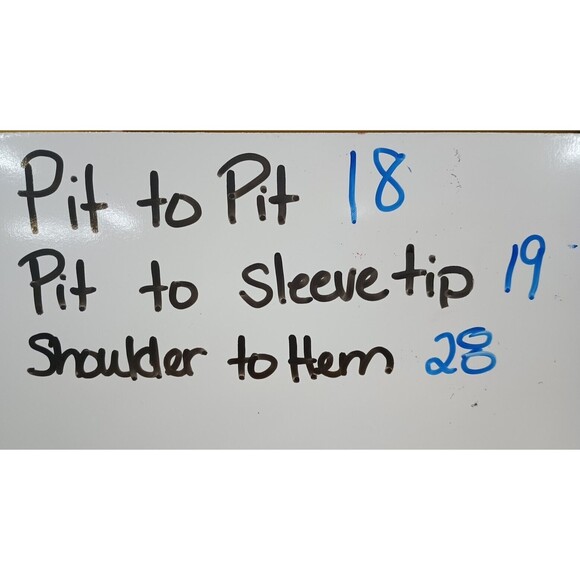 Pit to Pit 18
Pit to Sleeve tip 19
Shoulder to Hem 28